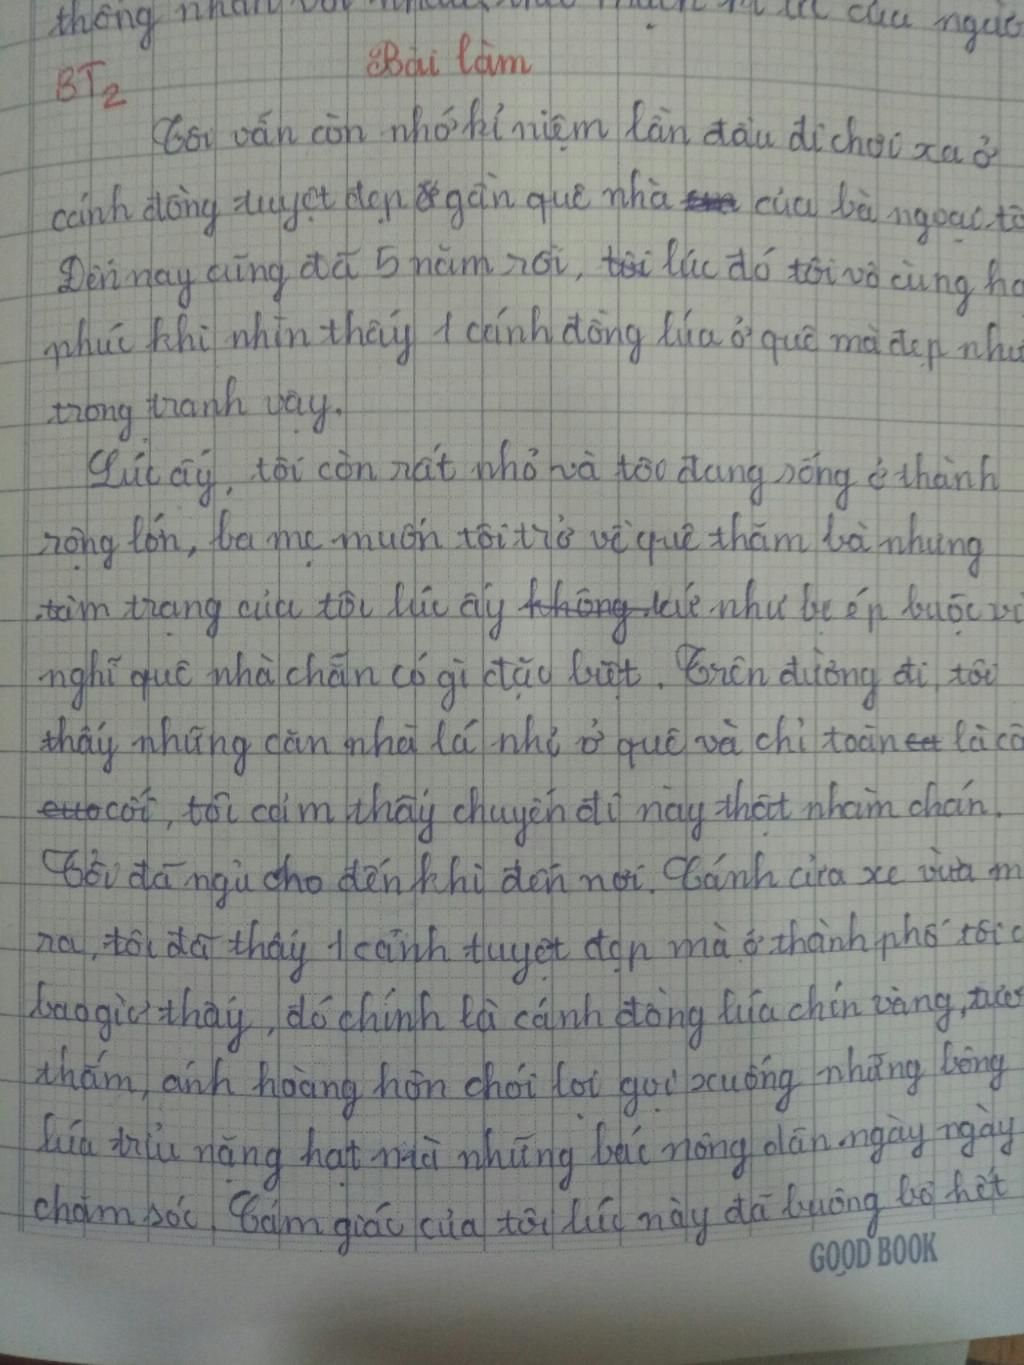 thống nhân
của người
BT2 Bài làm
Tôi vẫn còn nhớ kỉ niệm lần đầu đi chơi xa ở
cánh đồng tuyệt đẹp gần quê nhà của bà ngoại tô
Đến nay cũng đã 5 năm rồi, tôi lúc đó tôi vô cùng hạ
phúc khi nhìn thấy 1 cánh đồng lúa ở quê mà đẹp như
trong tranh vậy.
Lúc ấy, tôi còn rất nhỏ và tôi đang sống ở thành
rộng lớn, ba mẹ muốn tôi trở về quê thăm bà nhưng
tâm trạng của tôi lúc ấy như bị ép buộc vì
nghĩ quê nhà chẳn có gì đặc biệt. Trên đường đi, tôi
thấy những căn nhà lá nhỏ ở quê và chỉ toàn là câ
cối, tôi cảm thấy chuyến đi này thật nhàm chán.
Tôi đã ngủ cho đến khi đến nơi. Cánh cửa xe vừa m
ra, tôi đã thấy 1 cảnh tuyệt đẹp mà ở thành phố tôi c
bao giờ thấy, đó chính là cánh đồng lúa chín vàng,
thắm, ánh hoàng hôn chói lọi gọi xuống những bông
lúa trĩu nặng hạt mà những bác nông dân ngày ngày
chăm sóc. Cảm giác của tôi lúc này đã buông bỏ hết
GOOD BOOK